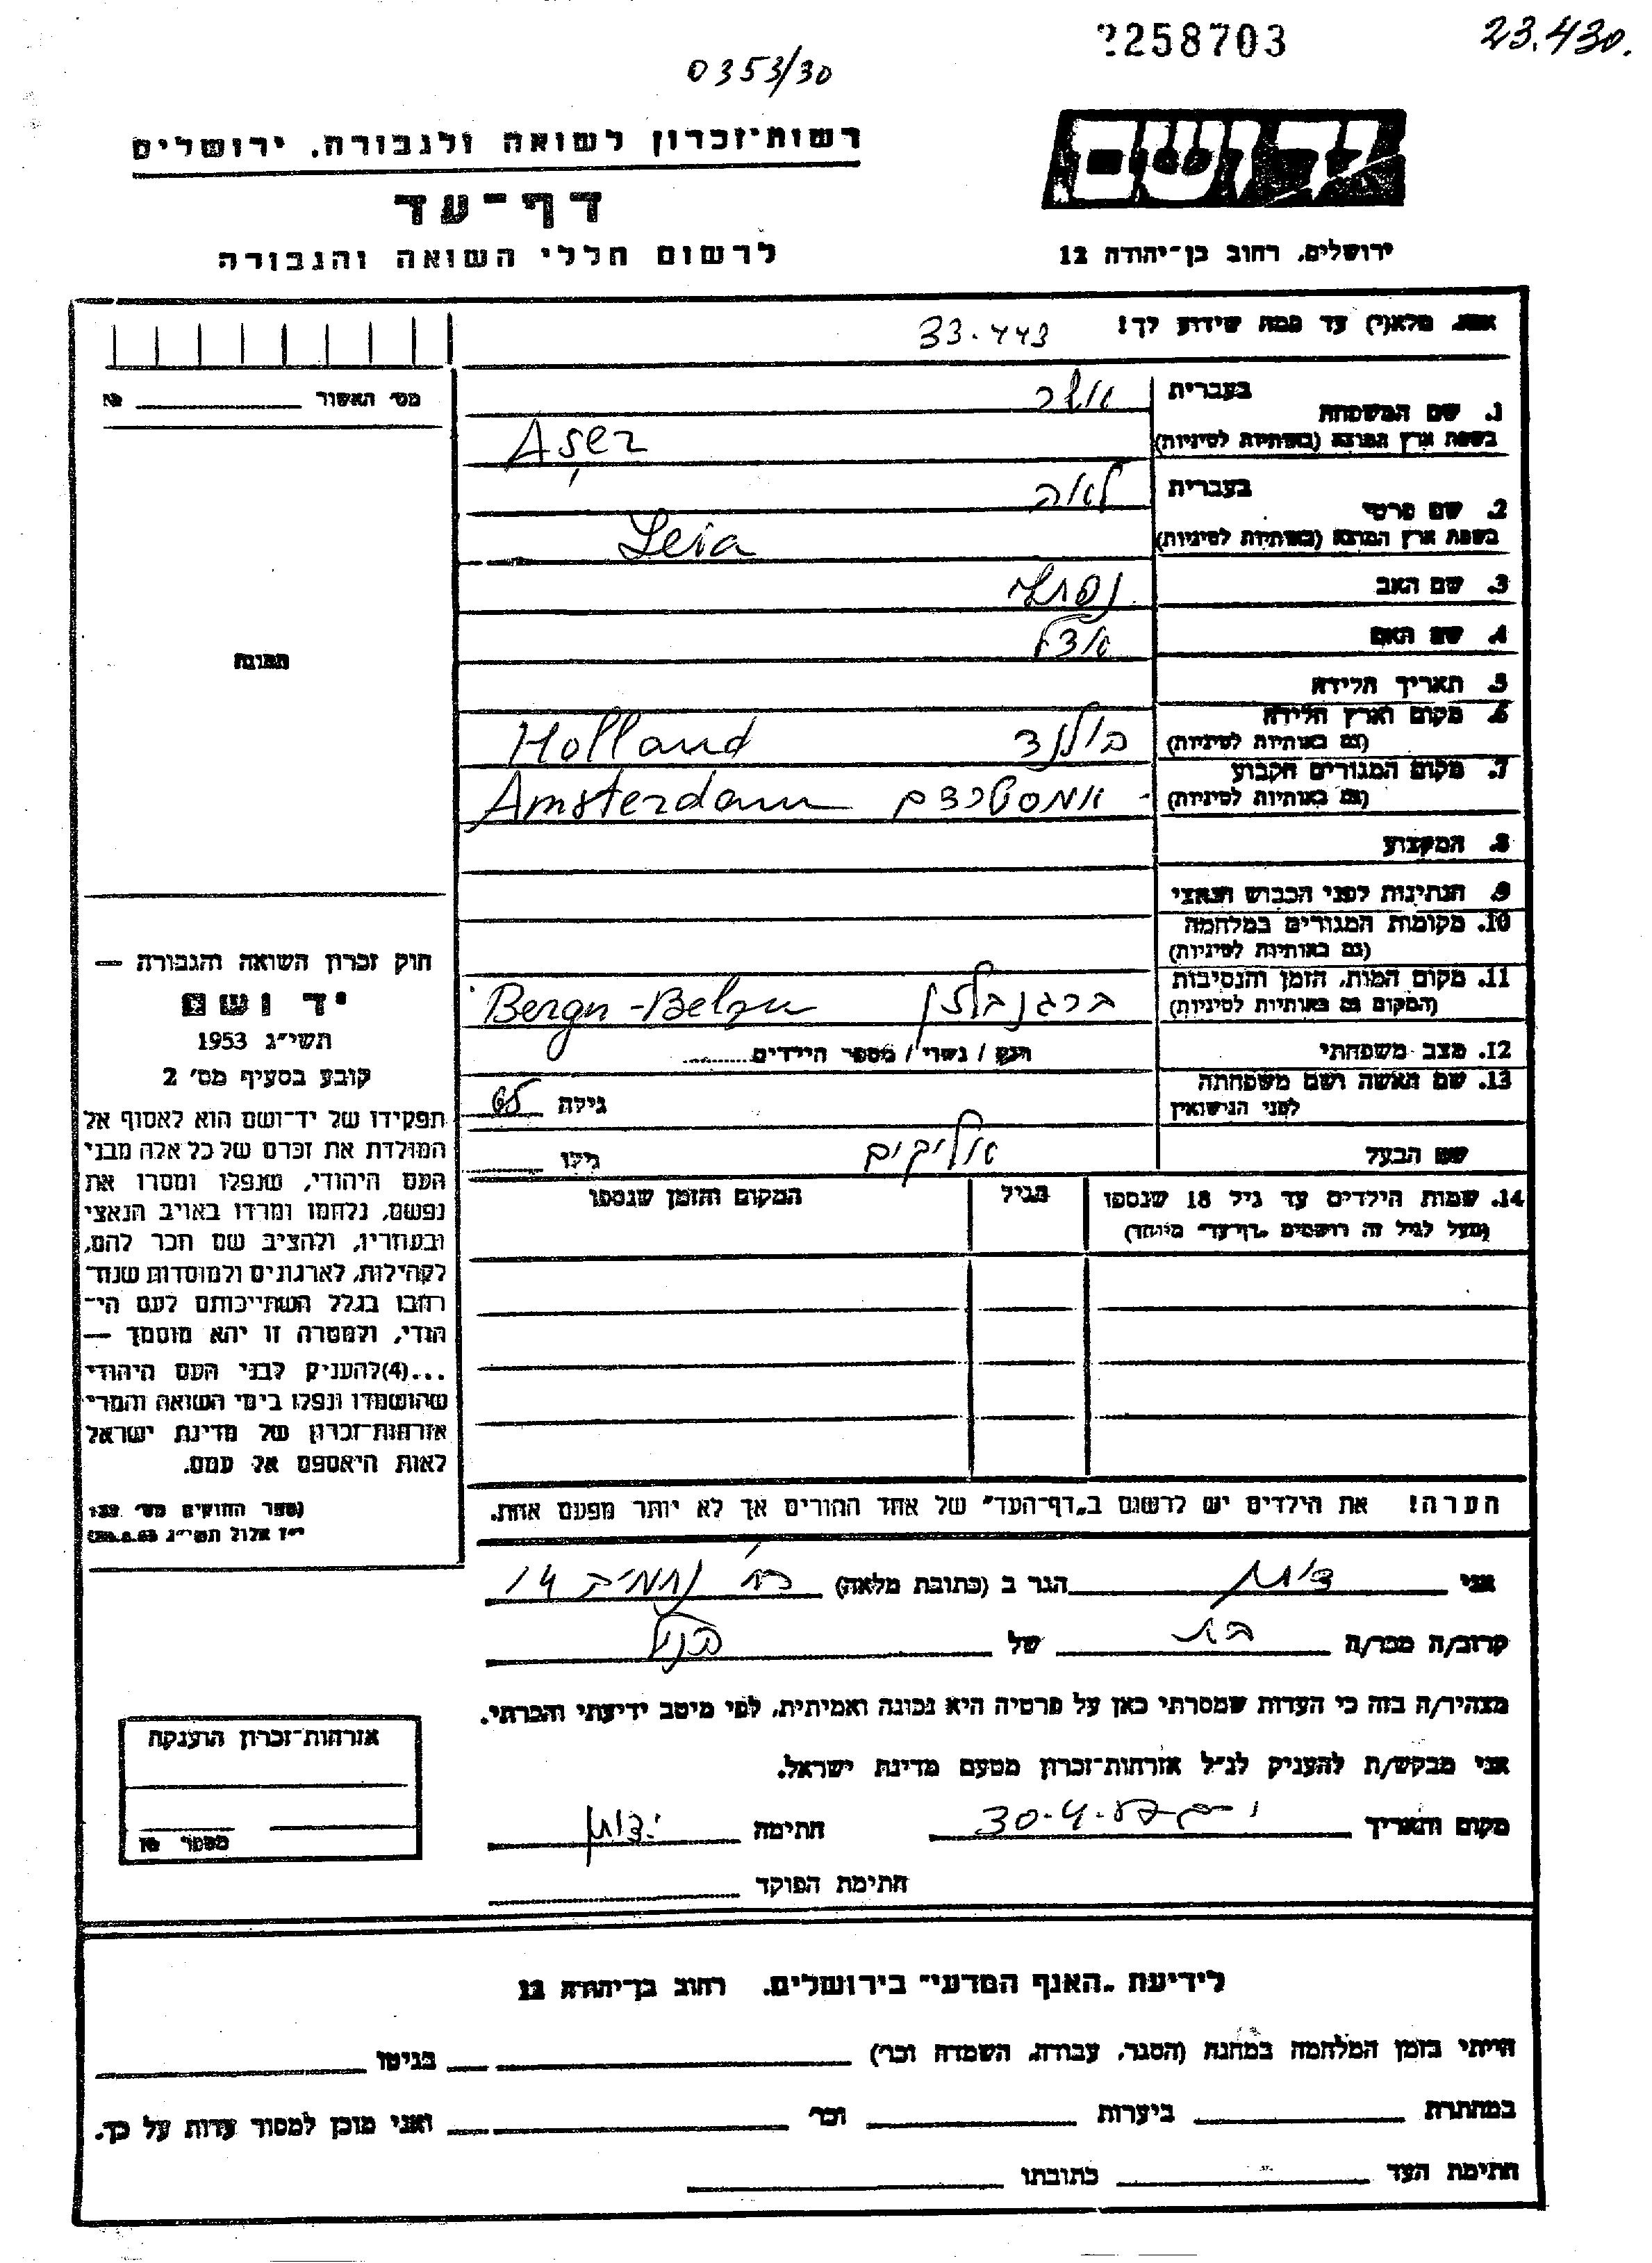 258703
23.430.
0353/30
רשות־זכרון לשואה ולגבורה, ירושלים
יד ושם
דף־עד
ירושלים, רחוב בן־יהודה 12
לרשום חללי השואה והגבורה
אנא, מלא(י) עד כמה שידוע לך!
33.443
מס׳ האשור № 
1. שם המשפחה
בעברית אשר
בשפת ארץ המוצא (באותיות לטיניות) Aşer
2. שם פרטי
בעברית לאה
בשפת ארץ המוצא (באותיות לטיניות) Leia
3. שם האב
4. שם האם
תמונה
5. תאריך הלידה
6. מקום וארץ הלידה הולנד Holland
(גם באותיות לטיניות)
7. מקום המגורים הקבוע אמסטרדם Amsterdam
(גם באותיות לטיניות)
8. המקצוע
9. הנתינות לפני הכבוש הנאצי
10. מקומות המגורים במלחמה
(גם באותיות לטיניות)
11. מקום המות, הזמן והנסיבות ברגן בלזן Bergn-Belzn
(המקום גם באותיות לטיניות)
12. מצב משפחתי רווק / נשוי / מספר הילדים
13. שם האשה ושם משפחתה
לפני הנישואין גילה 65
שם הבעל אליקים גילו
14. שמות הילדים עד גיל 18 שנספו הגיל המקום והזמן שנספו
(מעל לגיל זה רושמים "דף־עד" מיוחד)
חוק זכרון השואה והגבורה —
יד ושם
תשי״ג 1953
קובע בסעיף מס׳ 2
תפקידו של יד־ושם הוא לאסוף אל
המולדת את זכרם של כל אלה מבני
העם היהודי, שנפלו ומסרו את
נפשם, נלחמו ומרדו באויב הנאצי
ובעוזריו, ולהציב שם וזכר להם,
לקהילות, לארגונים ולמוסדות שנח־
רבו בגלל השתייכותם לעם הי־
הודי, ולמטרה זו יהא מוסמך —
...(4)להעניק לבני העם היהודי
שהושמדו ונפלו בימי השואה והמרי
אזרחות־זכרון של מדינת ישראל
לאות היאספם אל עמם.
(ספר החוקים מס׳ 132
י״ז אלול תשי״ג
הערה! את הילדים יש לרשום ב"דף־העד" של אחד ההורים אך לא יותר מפעם אחת.
אני הגר ב (כתובת מלאה) 14
קרוב/ה מכר/ה בת של
מצהיר/ה בזה כי העדות שמסרתי כאן על פרטיה היא נכונה ואמיתית, לפי מיטב ידיעתי והכרתי.
אני מבקש/ת להעניק לנ״ל אזרחות־זכרון מטעם מדינת ישראל.
מקום ותאריך 30.4. חתימה
חתימת הפוקד
אזרחות־זכרון הוענקה
מספר
לידיעת "האגף המדעי" בירושלים, רחוב בן־יהודה 12
הייתי בזמן המלחמה במחנה (הסגר, עבודה, השמדה וכו׳) בגיטו
במחתרת ביערות וכו׳ ואני מוכן למסור עדות על כך.
חתימת העד כתובתו